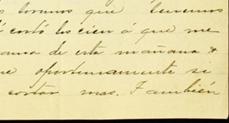 que tenemos
cortó los cien á que me
de esta mañana &
oportunamente se
cortar mas. Tambien